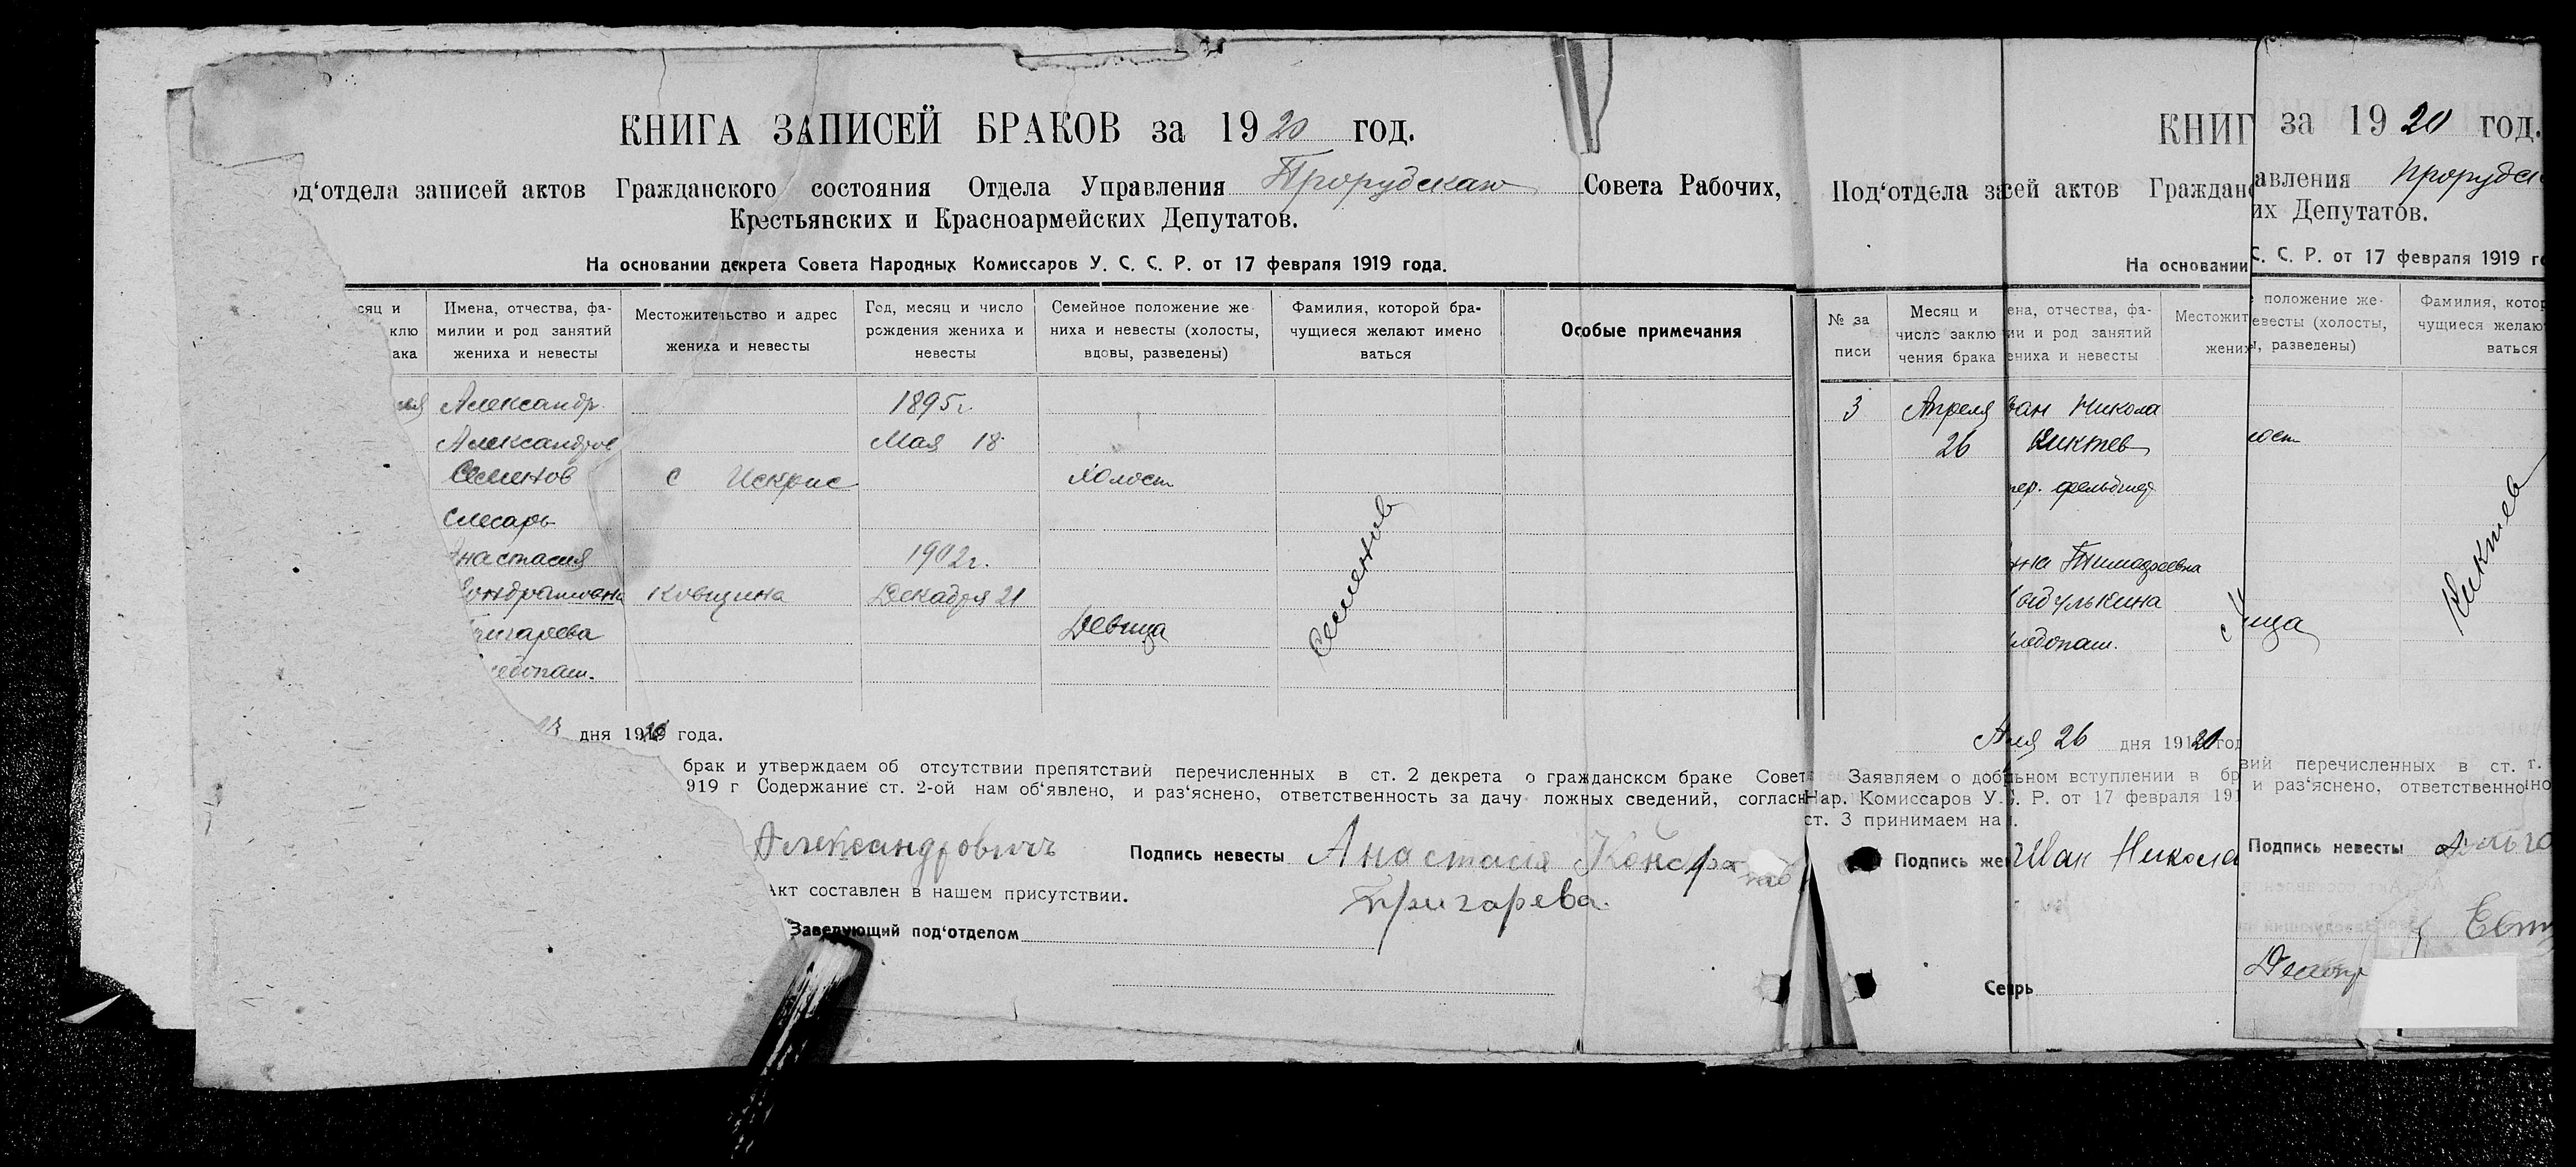 КНИГА ЗАПИСЕЙ БРАКОВ за 1920 год.
од‘отдела записей актов Гражданского состояния Отдела Управления Прорубскаго Совета Рабочих,
Крестьянских и Красноармейских Депутатов.
На основании декрета Совета Народных Комиссаров У. С. С. Р. от 17 февраля 1919 года.
сяц и
клю
ака
Имена, отчества, фа-
милии и род занятий
жениха и невесты
Местожительство и адрес
жениха и невесты
Год, месяц и число
рождения жениха и
невесты
Семейное положение же-
ниха и невесты (холосты,
вдовы, разведены)
Фамилия, которой бра-
чущиеся желают имено
ваться
Особые примечания
Александр 1895г.
Александров Мая 18
Семенов с Искрис Холост
Слесарь
настасия 1902г.
Кондратовна Ковщина Декабря 21
Григарева Девица
лебопаш.
Семенов
дня 1919 года.
брак и утверждаем об отсутствии препятствий перечисленных в ст. 2 декрета о гражданском браке Совет
919 г Содержание ст. 2-ой нам об‘явлено, и раз‘яснено, ответственность за дачу ложных сведений, согласн
Александровичъ Подпись невесты Анастасія Кондра
Григарева.
Акт составлен в нашем присутствии.
Заведующий под‘отделом
КНИГ
Под‘отдела за сей актов Гражданс
На основании
№ за
писи
Месяц и
число заклю
чения брака
ена, отчества, фа-
ии и род занятий
ениха и невесты
Местожит
жених
3 Апреля ван Никола
26 Киктев
фельдшер
нна Тимофеевна
адулькина
лебопаш.
26 дня 1920 год
Заявляем о доб льном вступлении в бр
Нар. Комиссаров У. С. Р. от 17 февраля 191
ст. 3 принимаем на
Подпись же Иван Никола
Се рь
за 1920 год.
авления Прорубс
их Депутатов.
С. С. Р. от 17 февраля 1919 го
положение же-
евесты (холосты,
ы, разведены)
Фамилия, котор
чущиеся желаю
ваться
лост
ица
Киктев
вий перечисленных в ст. г.
и раз‘яснено, ответственно
Подпись невесты